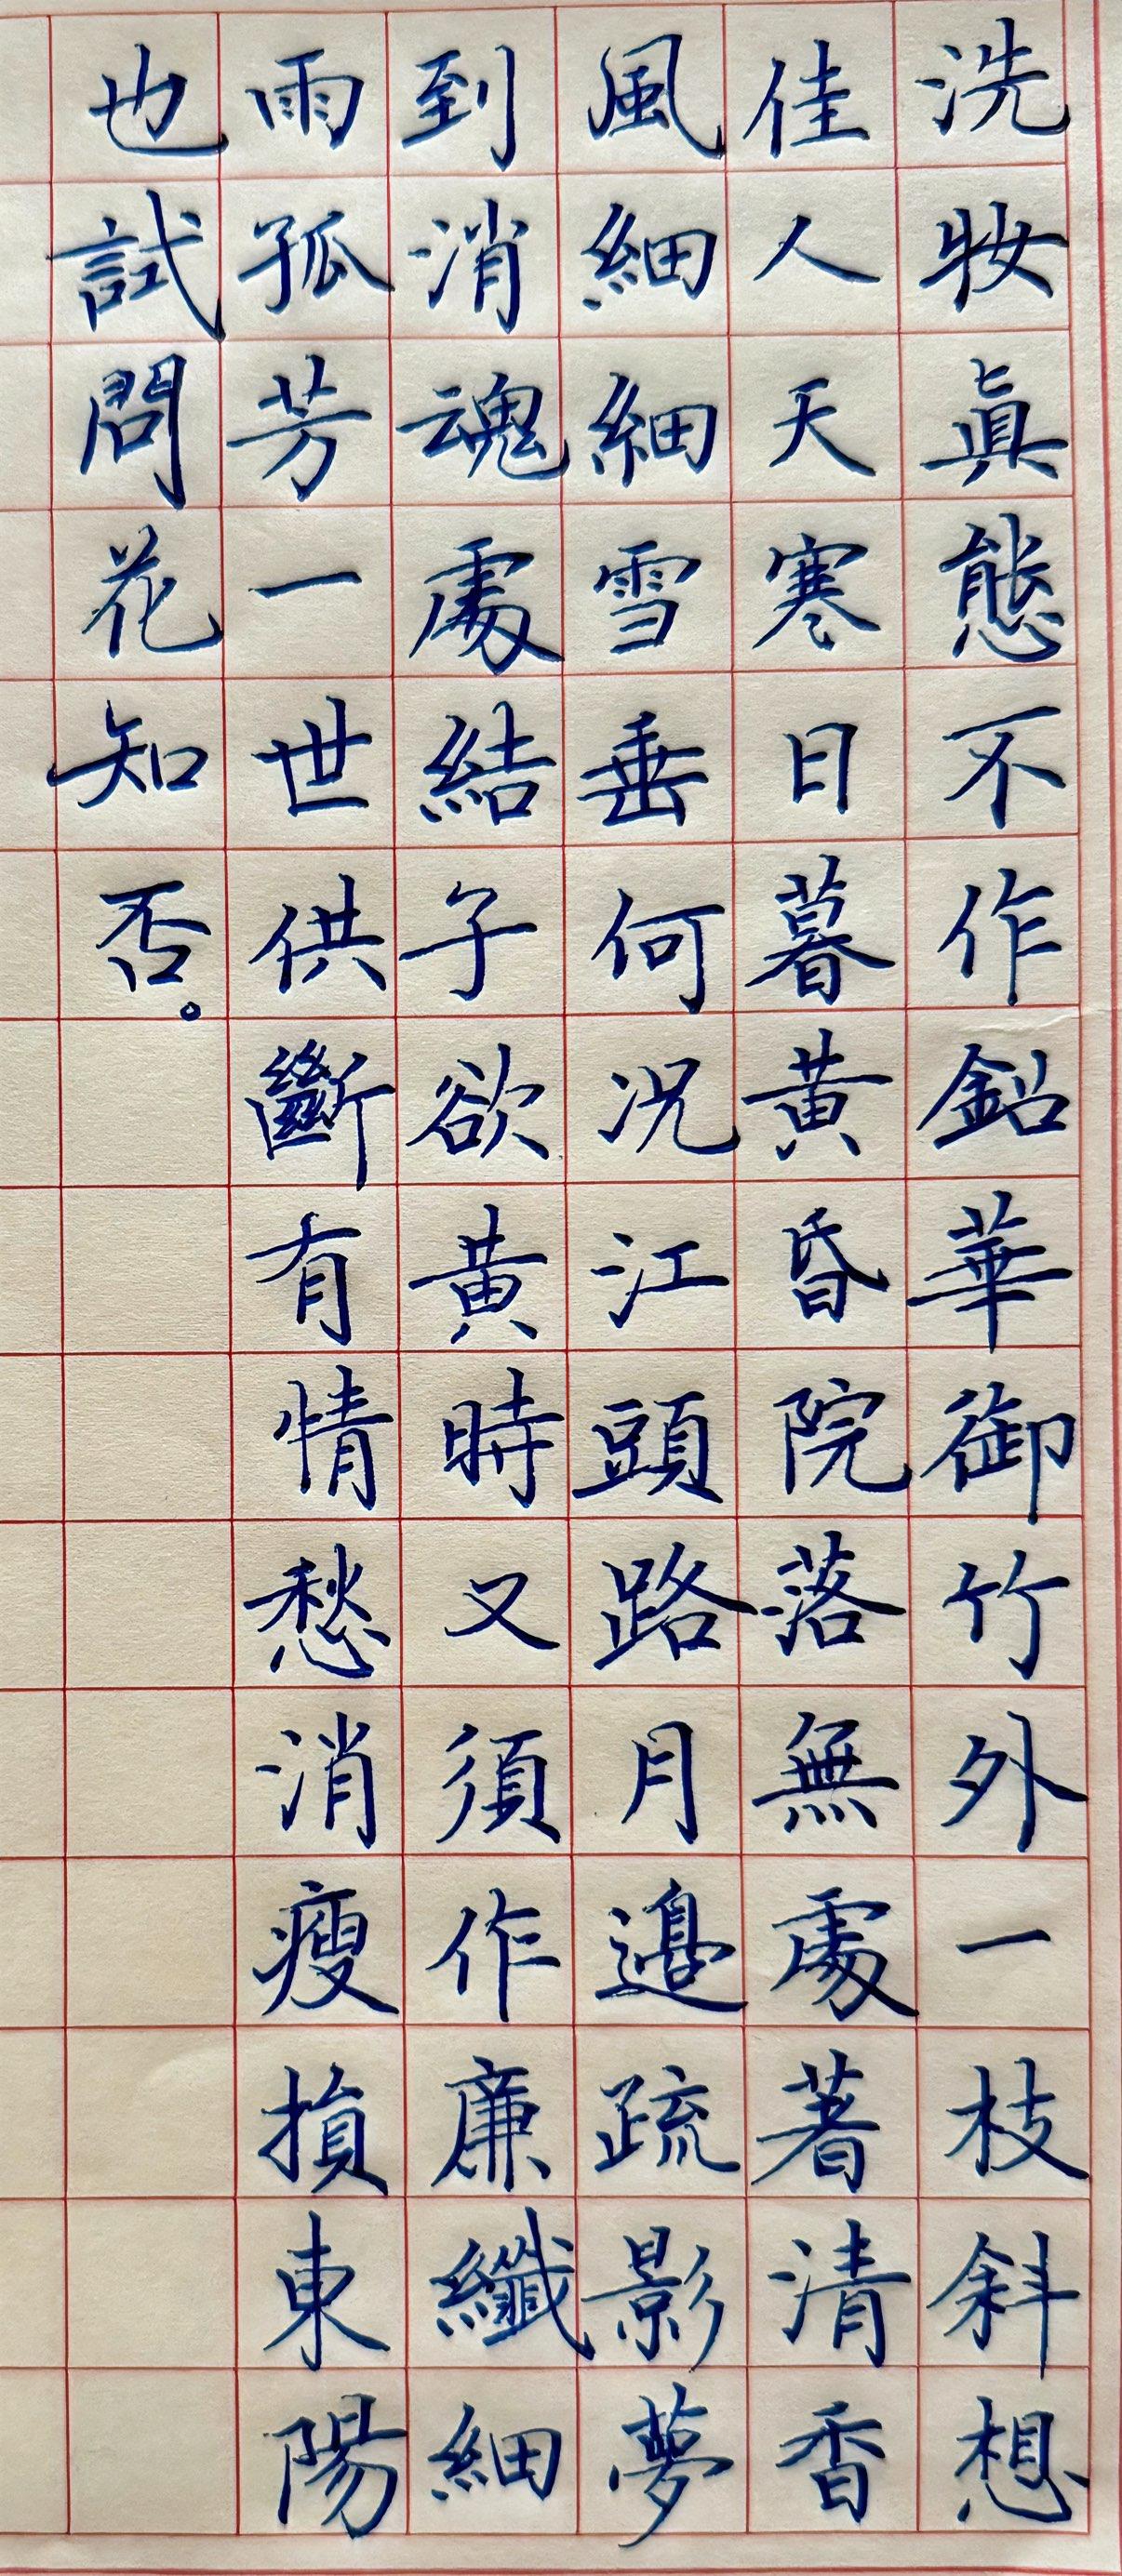 洗妝眞態不作鉛華御竹外一枝斜想
佳人天寒日暮黃昏院落無處著清香
風細細雪垂垂何况江頭路月邊疏影夢
到消魂處結子欲黃時又須作廉纖細
雨孤芳一世供斷有情愁消瘦損東陽
也試問花知否。